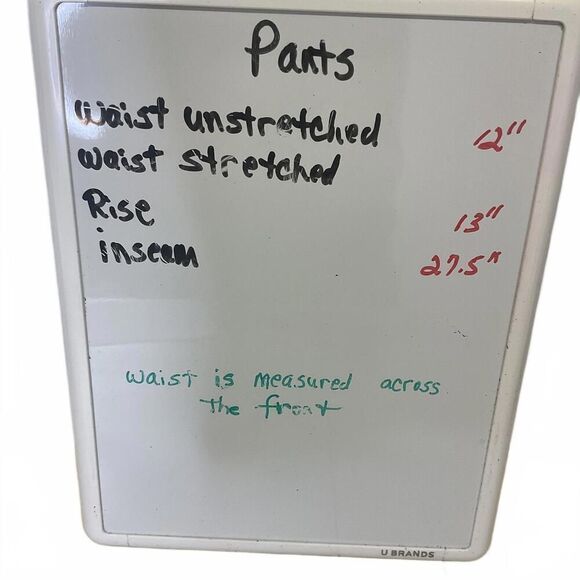 Pants
waist unstretched 12"
waist stretched
Rise 13"
inseam 27.5"
waist is measured across
the front
U BRANDS